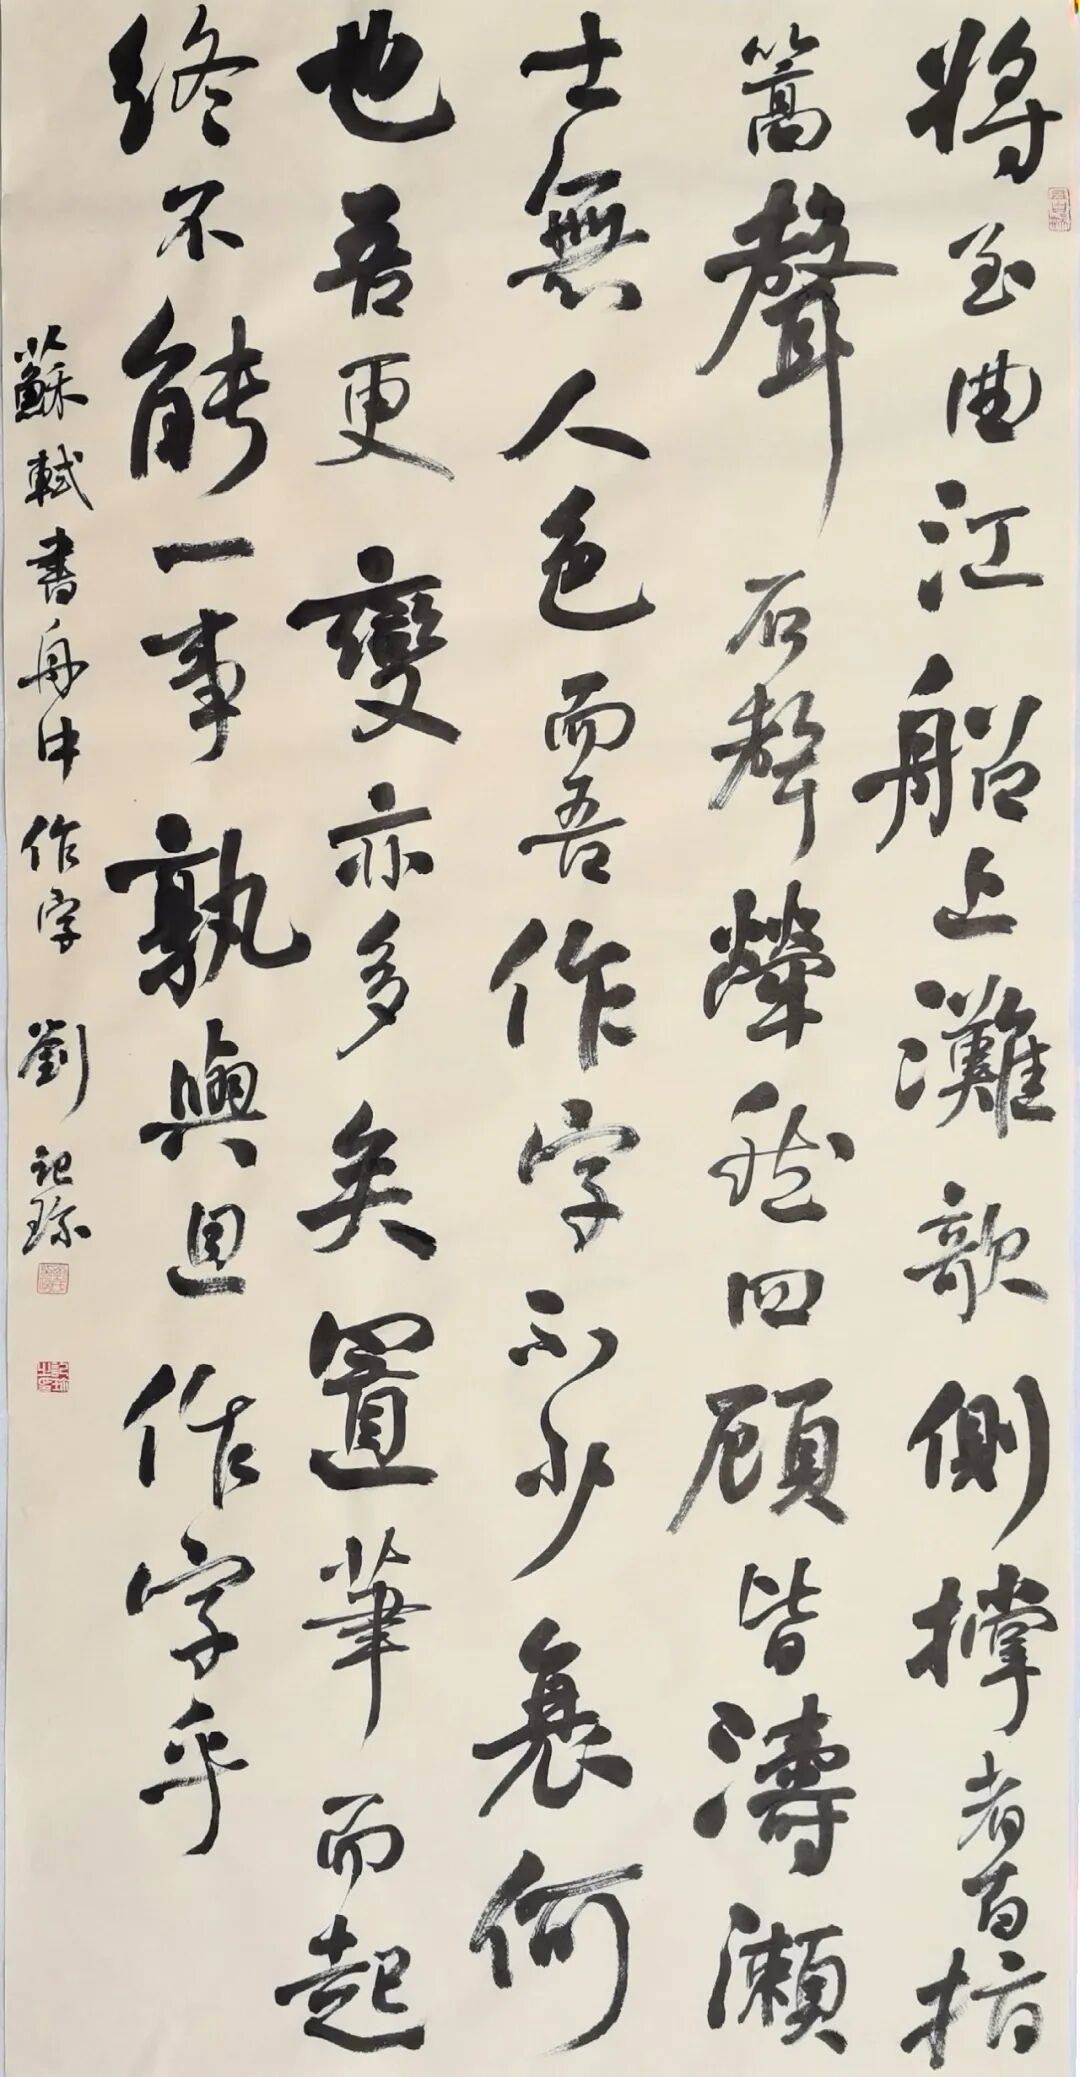 將至曲江船上灘欹側撐者百指
篙聲石聲犖然四顧皆濤瀨
士無人色而吾作字不少衰何
也吾更變亦多矣置筆而起
終不能一事孰與且作字乎
蘇軾書舟中作字 劉記珍